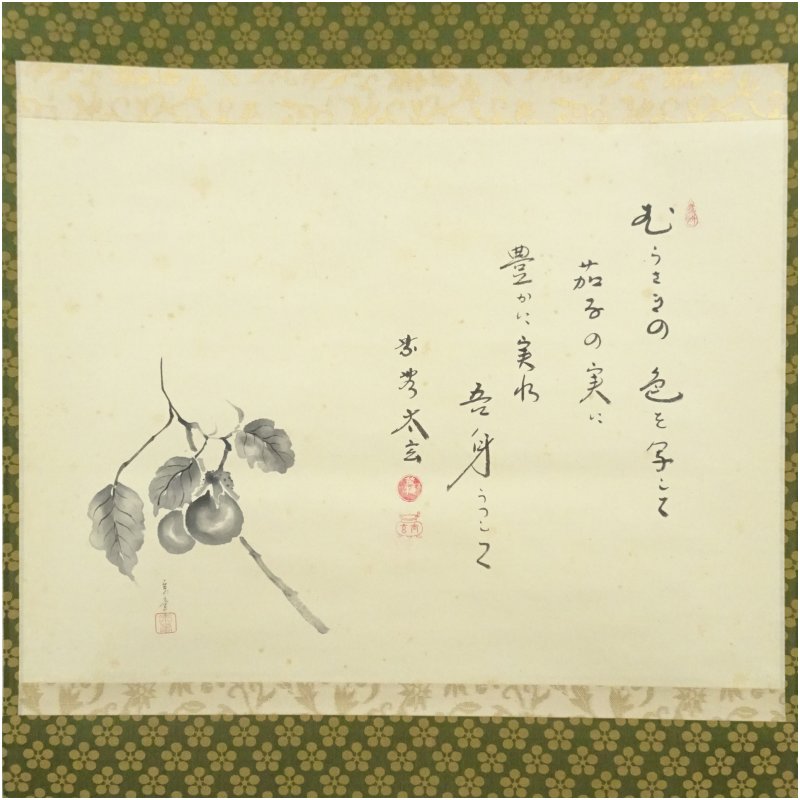 むらさきの色を写して
茄子の実に
豊かに実れ
吾身うつして
紫野 太玄